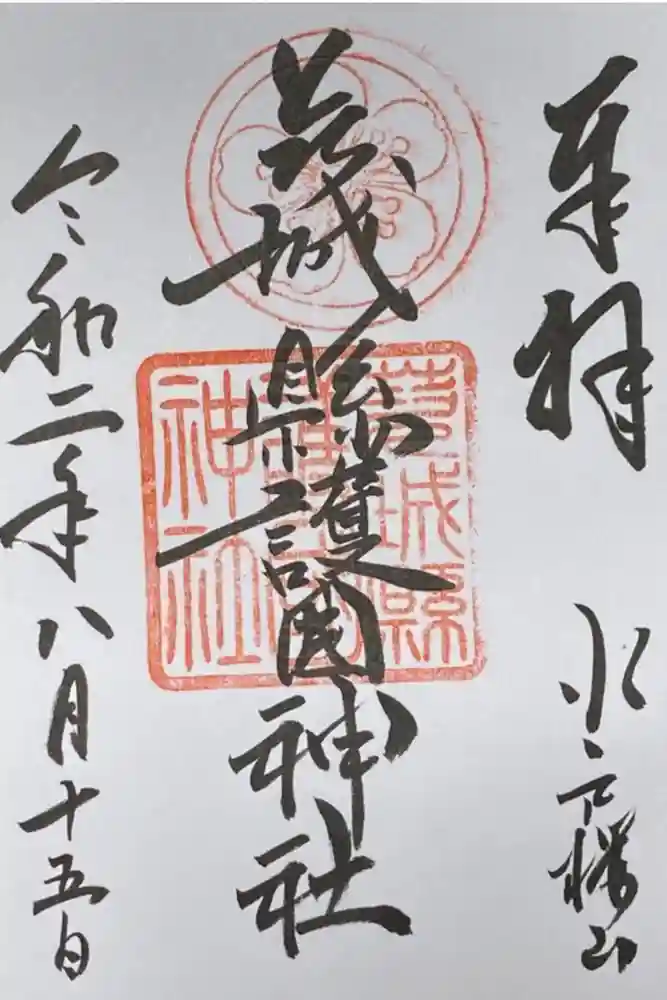 奉拝
水戸桜山
茨城縣護國神社
茨城縣
護國
神社
令和二年八月十五日